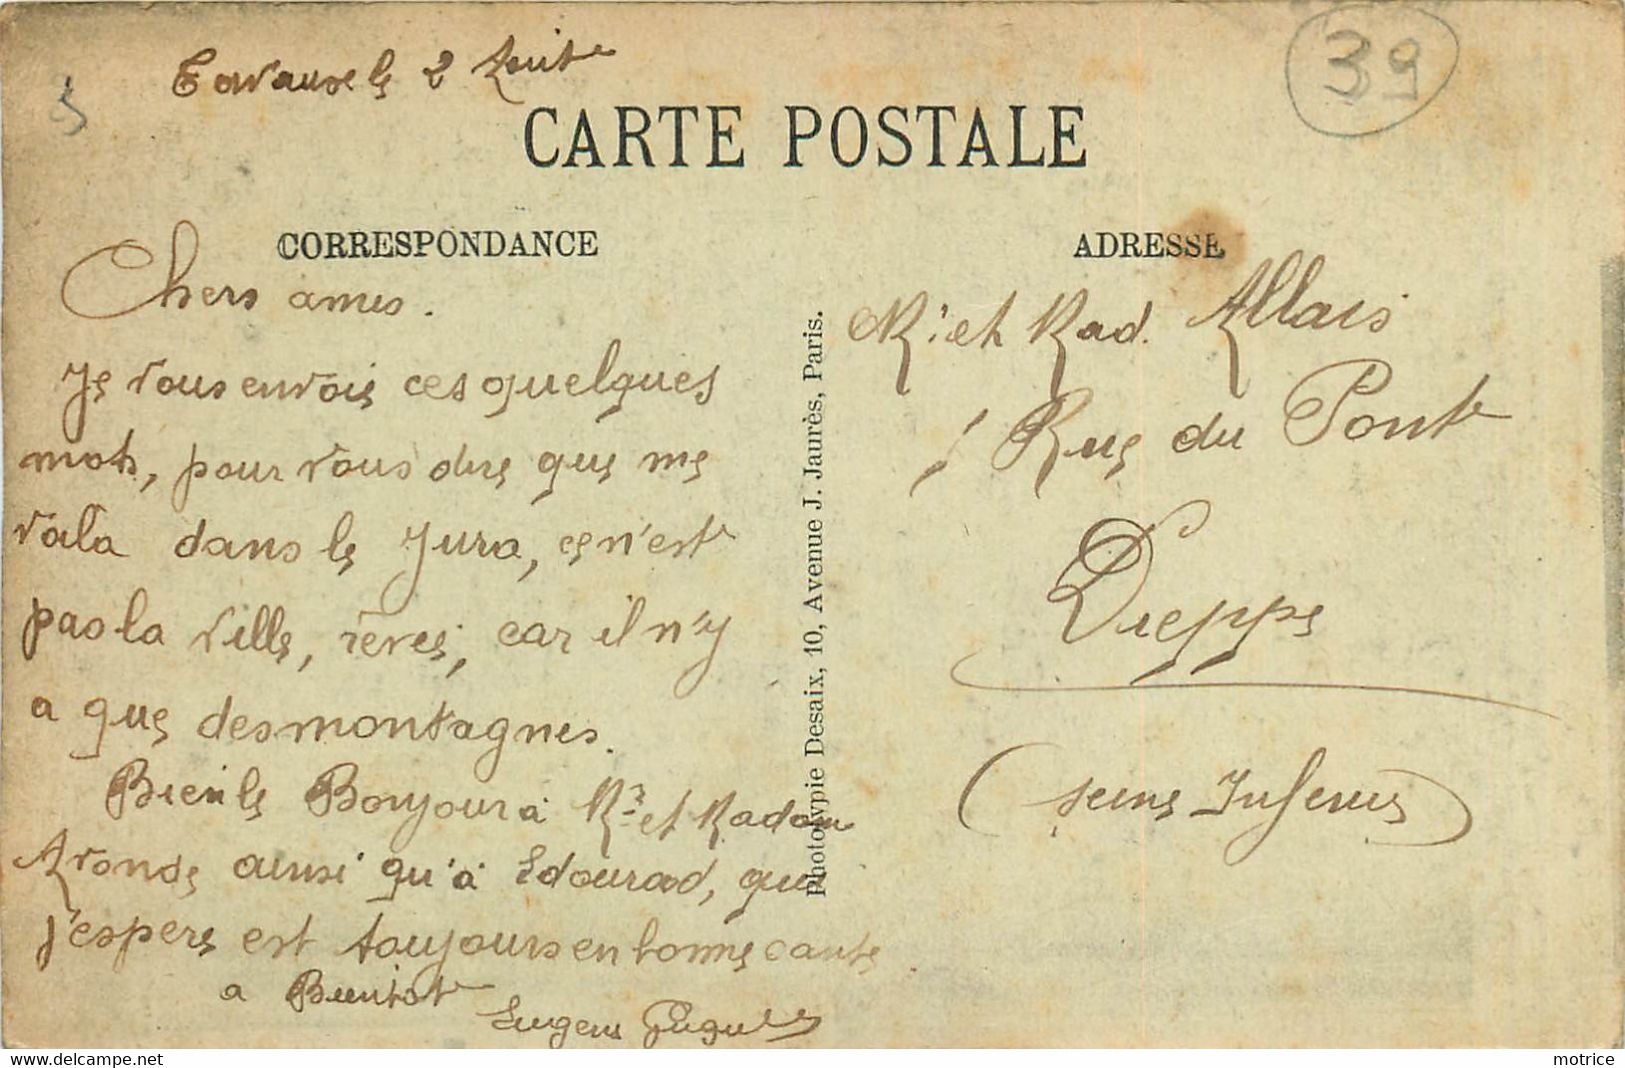 39
Tavaux le 2 Août
CARTE POSTALE
CORRESPONDANCE
Chers amis.
Je vous envoie ces quelques
mots, pour vous dire que me
voila dans le Jura, ce n'est
pas la ville, rêvée, car il n'y
a que des montagnes.
Bien le Bonjour à Mr et Madame
Aronde ainsi qu'à Edourad, que
j'espere est toujours en bonne cante
a Bientot
Eugene
Phototypie Desaix, 10, Avenue J. Jaurès, Paris.
ADRESSE
Mr et Mad. Allais
1 Rue du Pont
Dieppe
(Seine Inferieure)
motrice